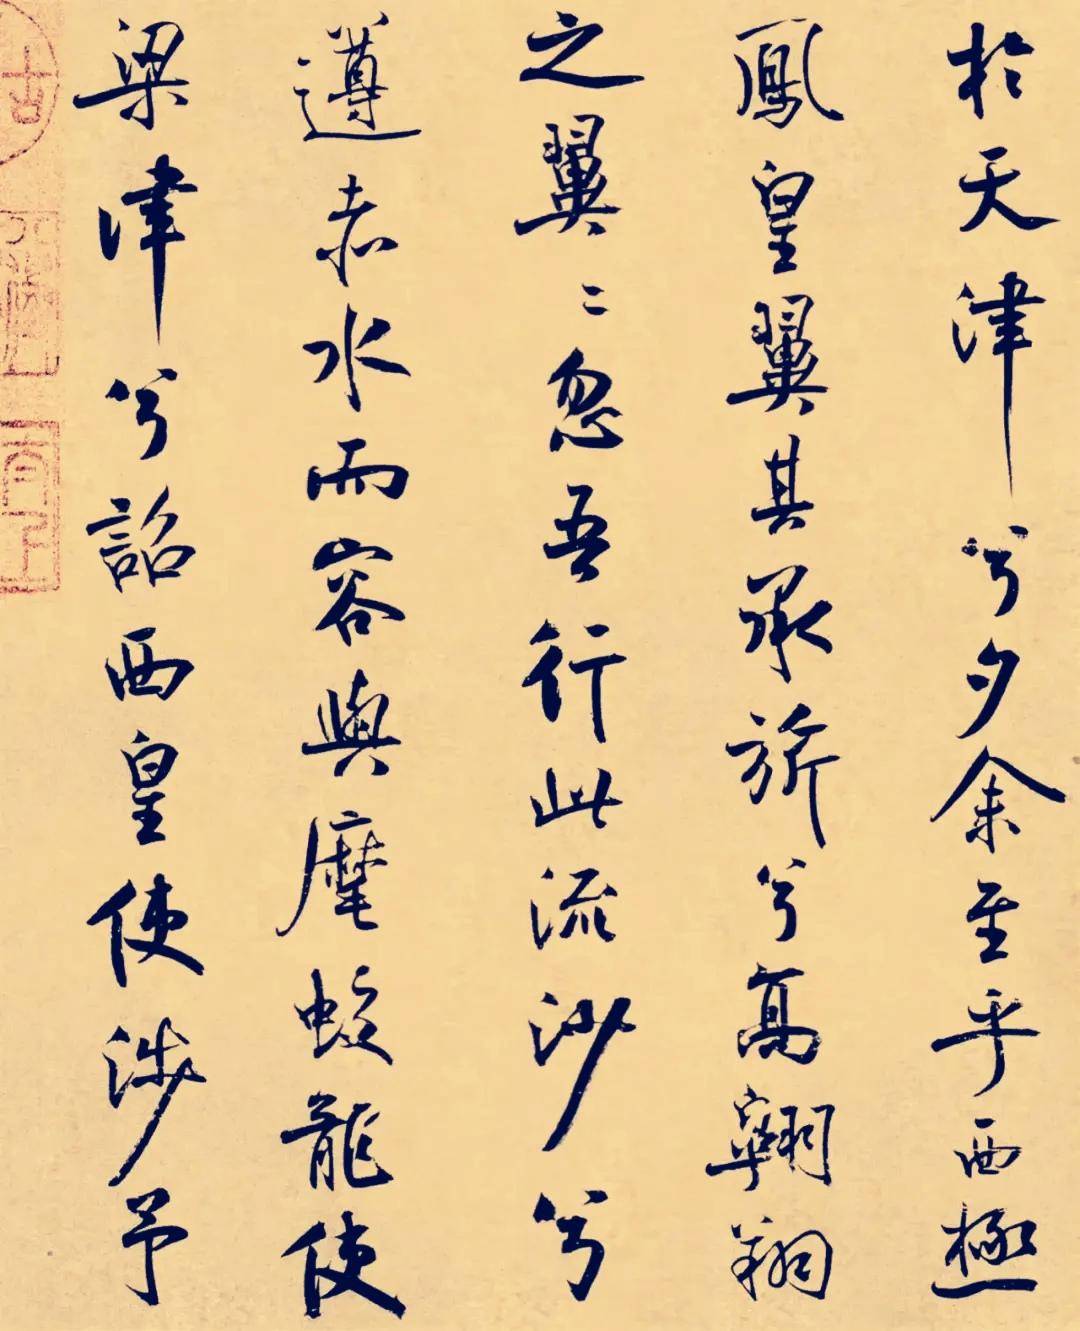 於天津兮夕余至乎西極
鳳皇翼其承旂兮高翱翔
之翼〻忽吾行此流沙兮
遵赤水而容與麾蛟龍使
梁津兮詔西皇使涉予